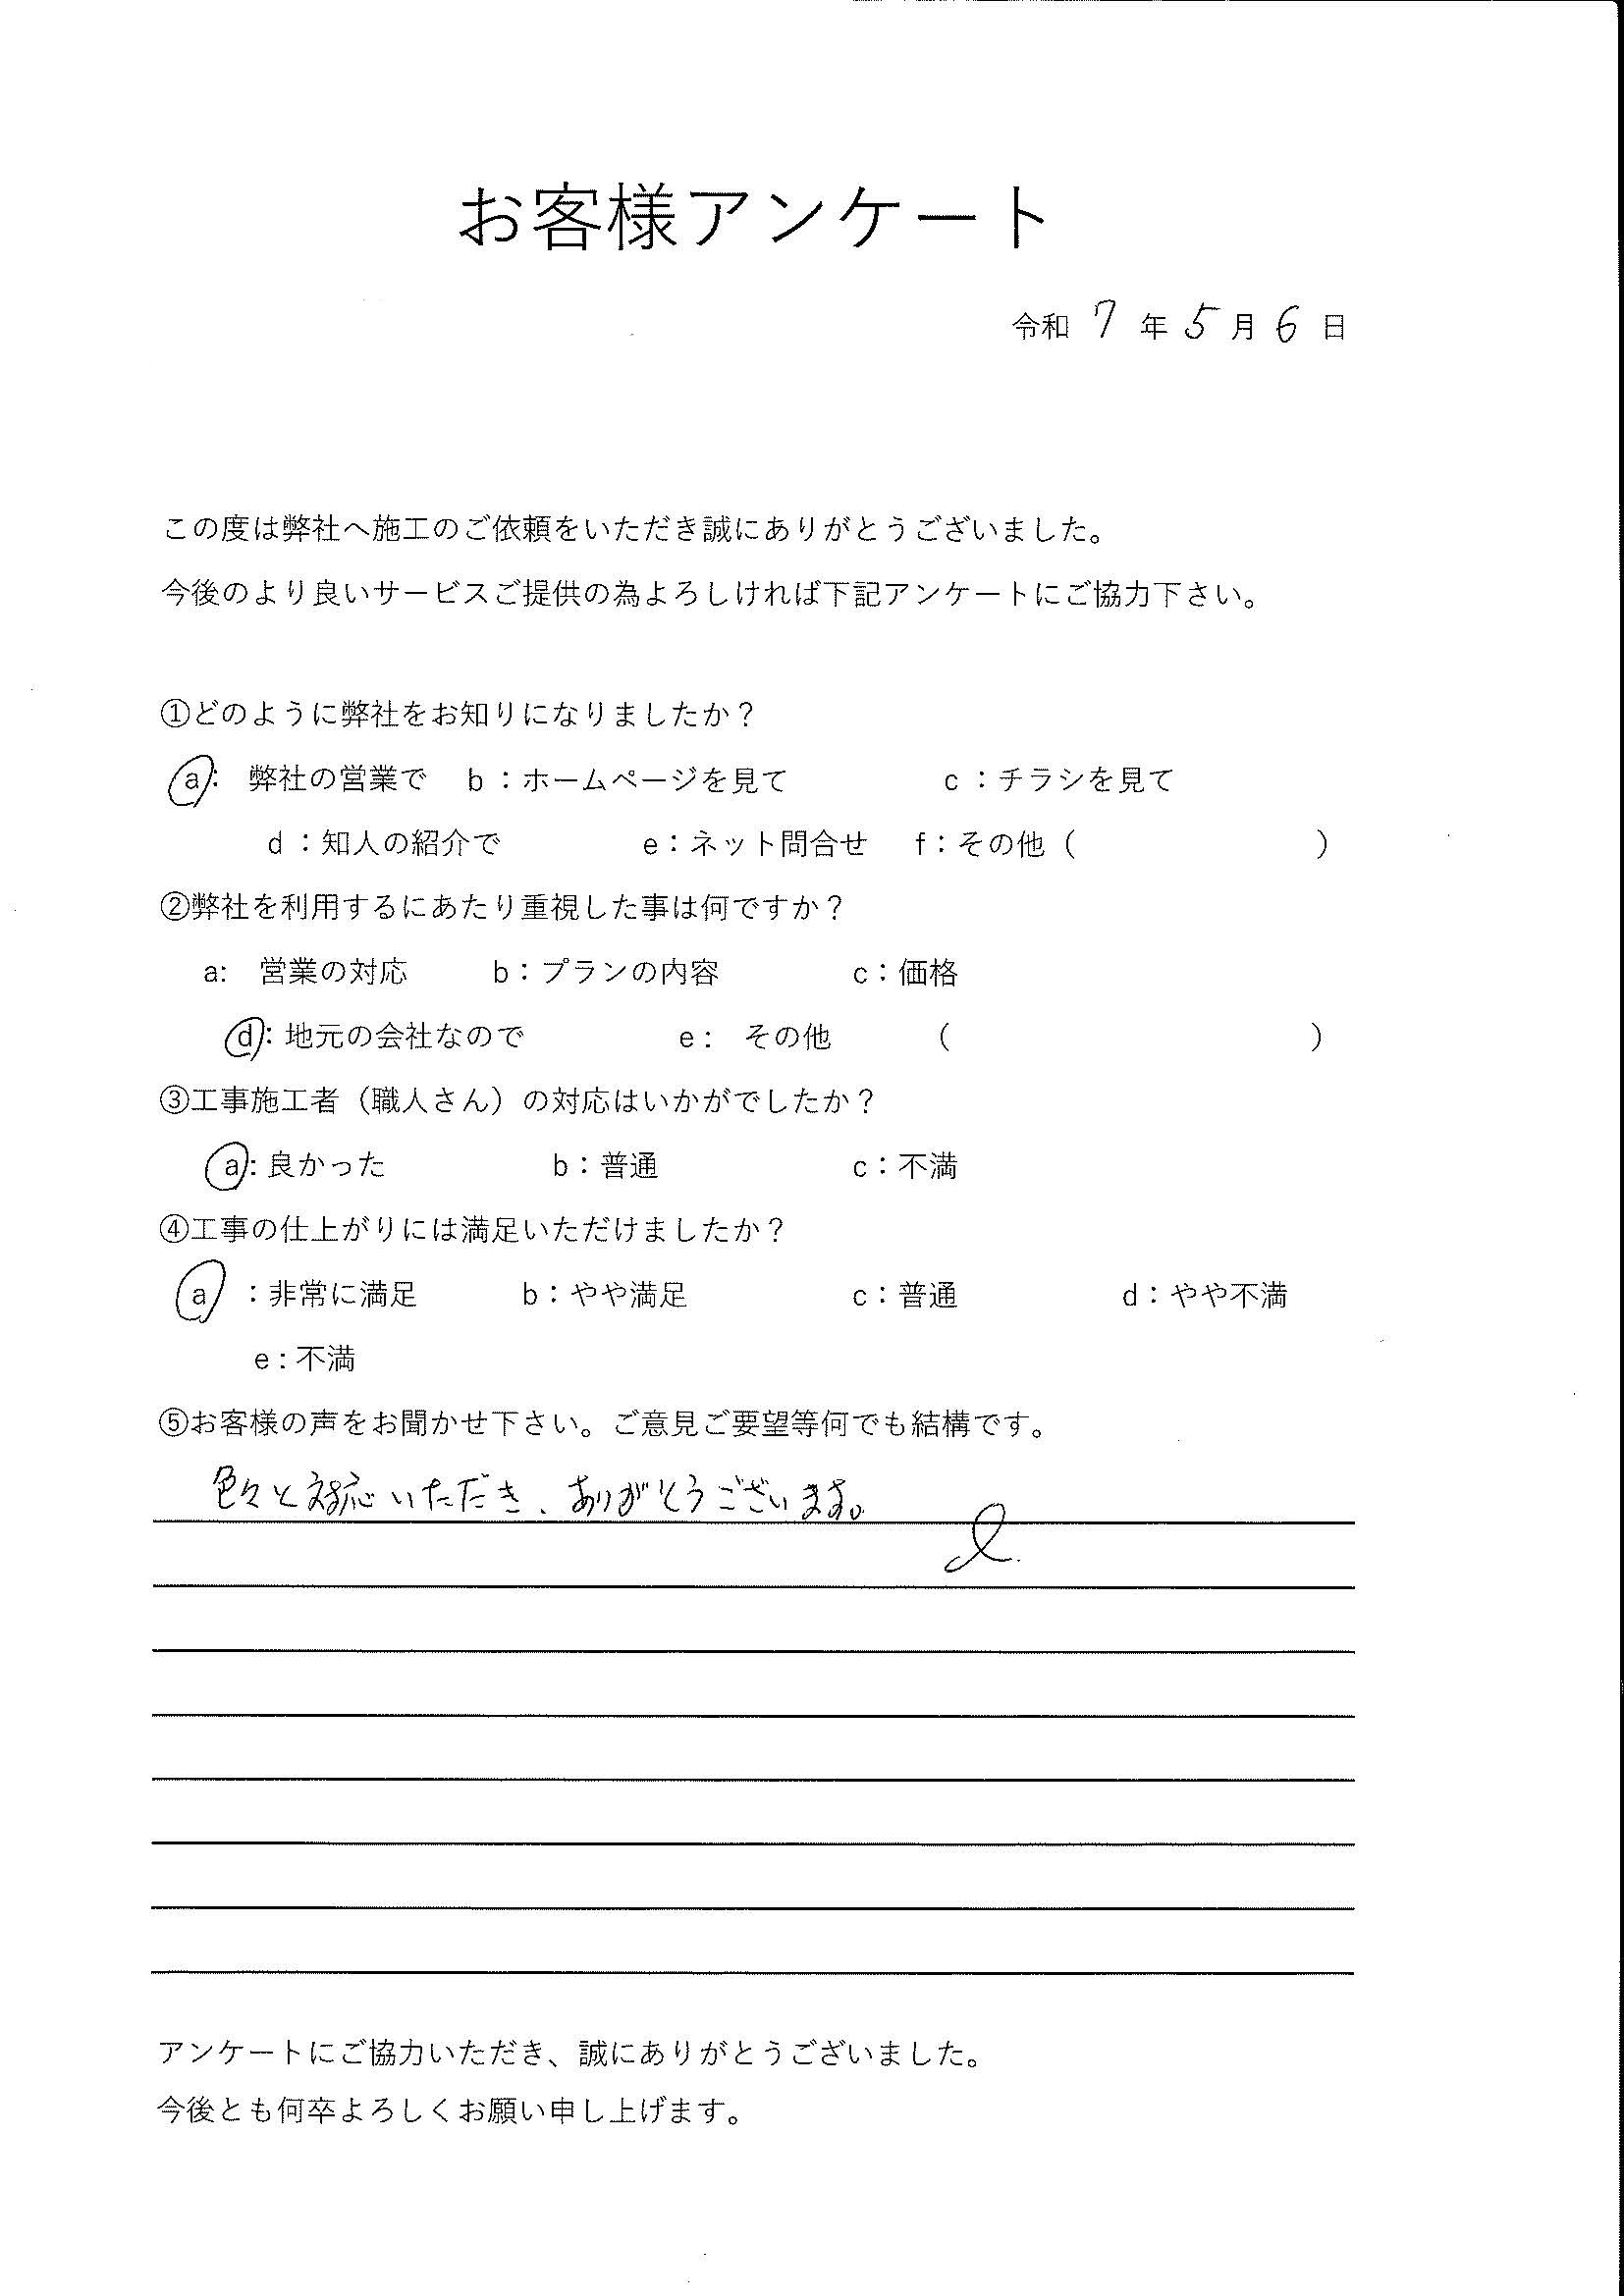 お客様アンケート
令和 7 年 5 月 6 日
この度は弊社へ施工のご依頼をいただき誠にありがとうございました。
今後のより良いサービスご提供の為よろしければ下記アンケートにご協力下さい。
①どのように弊社をお知りになりましたか？
a： 弊社の営業で b：ホームページを見て c：チラシを見て
d：知人の紹介で e：ネット問合せ f：その他（ ）
②弊社を利用するにあたり重視した事は何ですか？
a: 営業の対応 b：プランの内容 c：価格
d：地元の会社なので e： その他 （ ）
③工事施工者（職人さん）の対応はいかがでしたか？
a：良かった b：普通 c：不満
④工事の仕上がりには満足いただけましたか？
a ：非常に満足 b：やや満足 c：普通 d：やや不満
e：不満
⑤お客様の声をお聞かせ下さい。ご意見ご要望等何でも結構です。
色々と対応いただき、ありがとうございます。
アンケートにご協力いただき、誠にありがとうございました。
今後とも何卒よろしくお願い申し上げます。